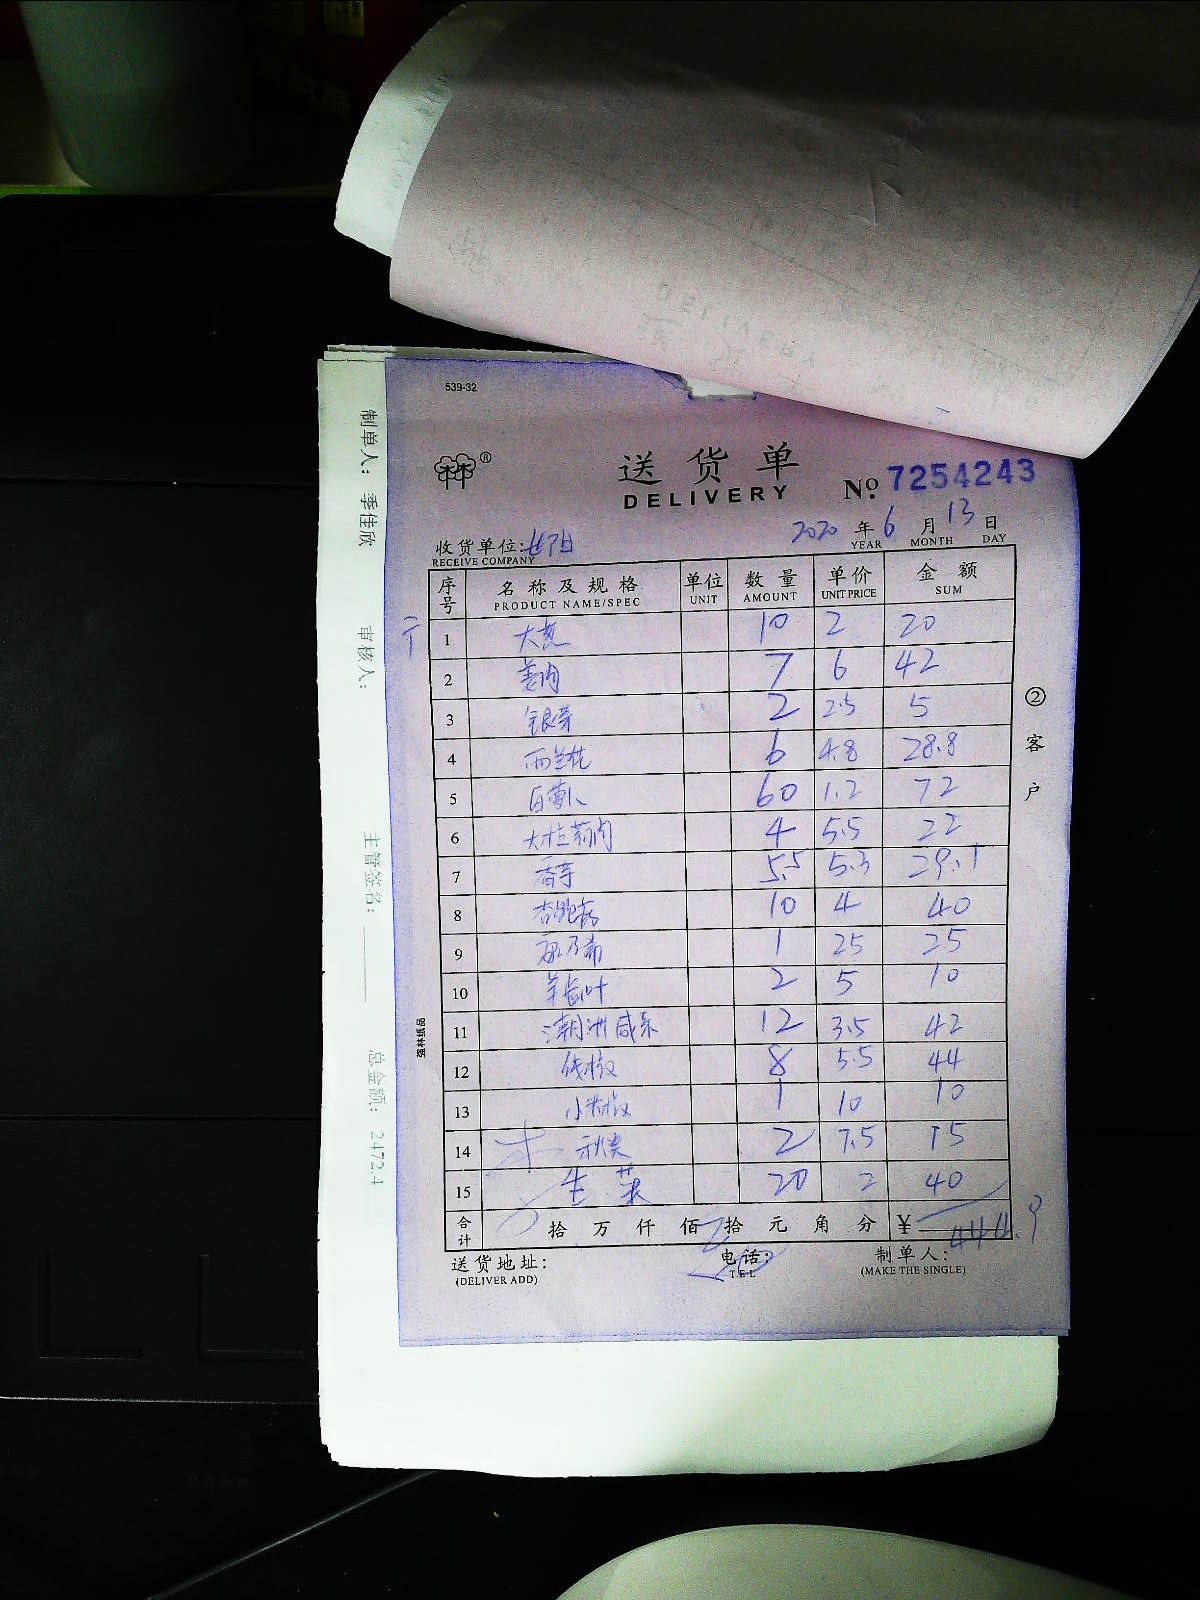 539-32
®
送货单
DELIVERY
№ 7254243
2020 年 6 月 13 日
YEAR MONTH DAY
收货单位:
RECEIVE COMPANY
序号 名称及规格 单位 数量 单价 金额
PRODUCT NAME/SPEC UNIT AMOUNT UNIT PRICE SUM
1 大葱 10 2 20
2 姜肉 7 6 42
3 银芽 2 2.5 5
4 西兰花 6 4.8 28.8
5 60 1.2 72
6 4 5.5 22
7 香芋 5.5 5.3 29.1
8 杏鲍菇 10 4 40
9 1 25 25
10 2 5 10
11 潮洲咸菜 12 3.5 42
12 线椒 8 5.5 44
13 小米椒 1 10 10
14 2 7.5 15
15 生菜 20 2 40
合计 拾万仟佰拾元角分 ¥ 444.9
送货地址: 电话: 制单人:
(DELIVER ADD) TEL (MAKE THE SINGLE)
② 客户
强林纸品
制单人: 季佳欣 审核人: 主管签名: 总金额: 2472.4